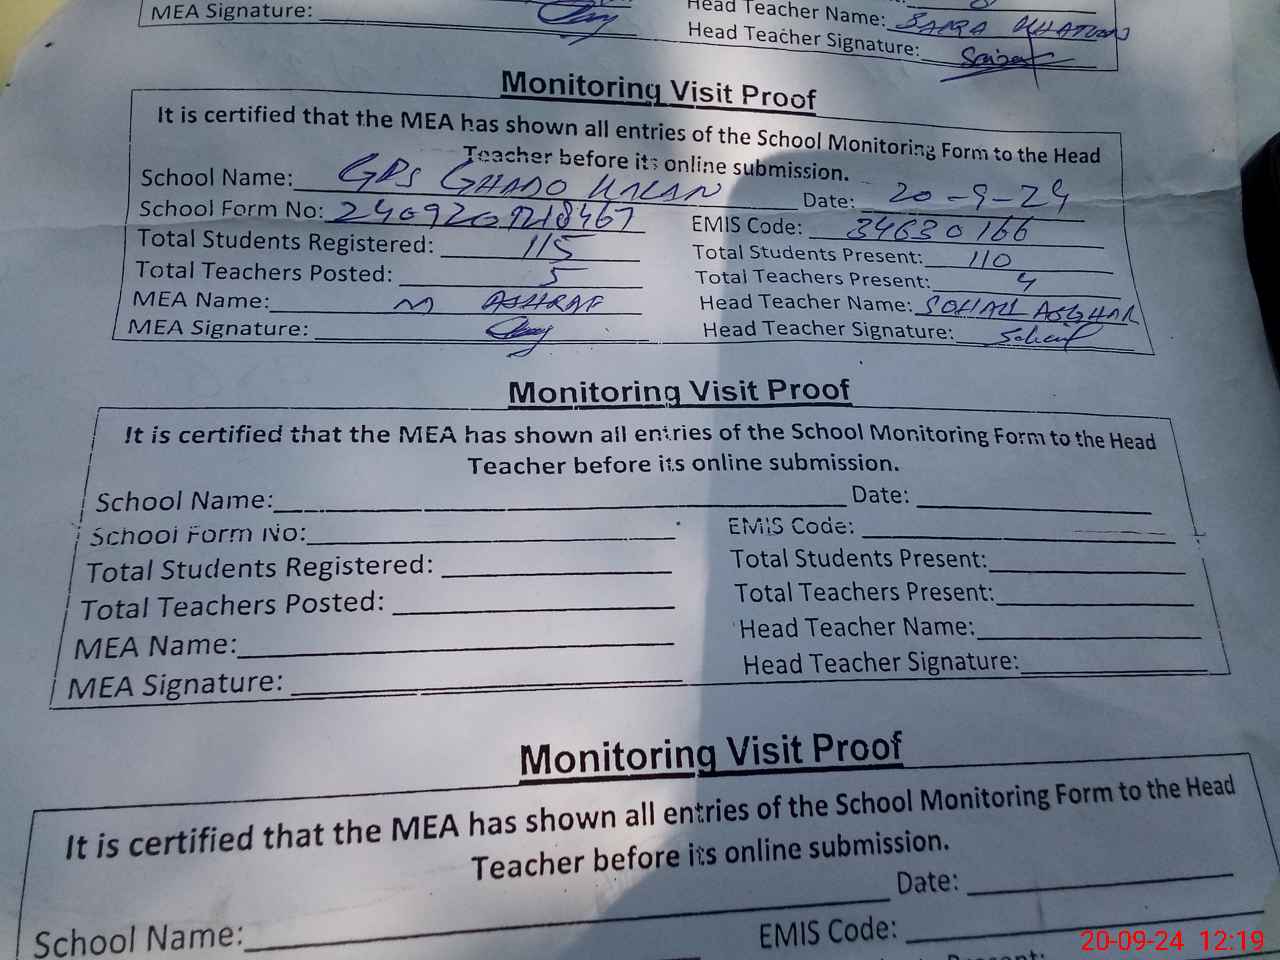 MEA Signature:
Head Teacher Name: SAIRA KHATOON
Head Teacher Signature:
Monitoring Visit Proof
It is certified that the MEA has shown all entries of the School Monitoring Form to the Head
Teacher before its online submission.
School Name: GPS GHADO KALAN Date: 20-9-24
School Form No: EMIS Code: 34630166
Total Students Registered: 115 Total Students Present: 110
Total Teachers Posted: 5 Total Teachers Present: 4
MEA Name: M ASHRAF Head Teacher Name: SOHAIL ASGHAR
MEA Signature: Head Teacher Signature:
Monitoring Visit Proof
It is certified that the MEA has shown all entries of the School Monitoring Form to the Head
Teacher before its online submission.
School Name: Date:
School Form No: EMIS Code:
Total Students Registered: Total Students Present:
Total Teachers Posted: Total Teachers Present:
MEA Name: Head Teacher Name:
MEA Signature: Head Teacher Signature:
Monitoring Visit Proof
It is certified that the MEA has shown all entries of the School Monitoring Form to the Head
Teacher before its online submission.
Date:
School Name: EMIS Code:
20-09-24 12:19